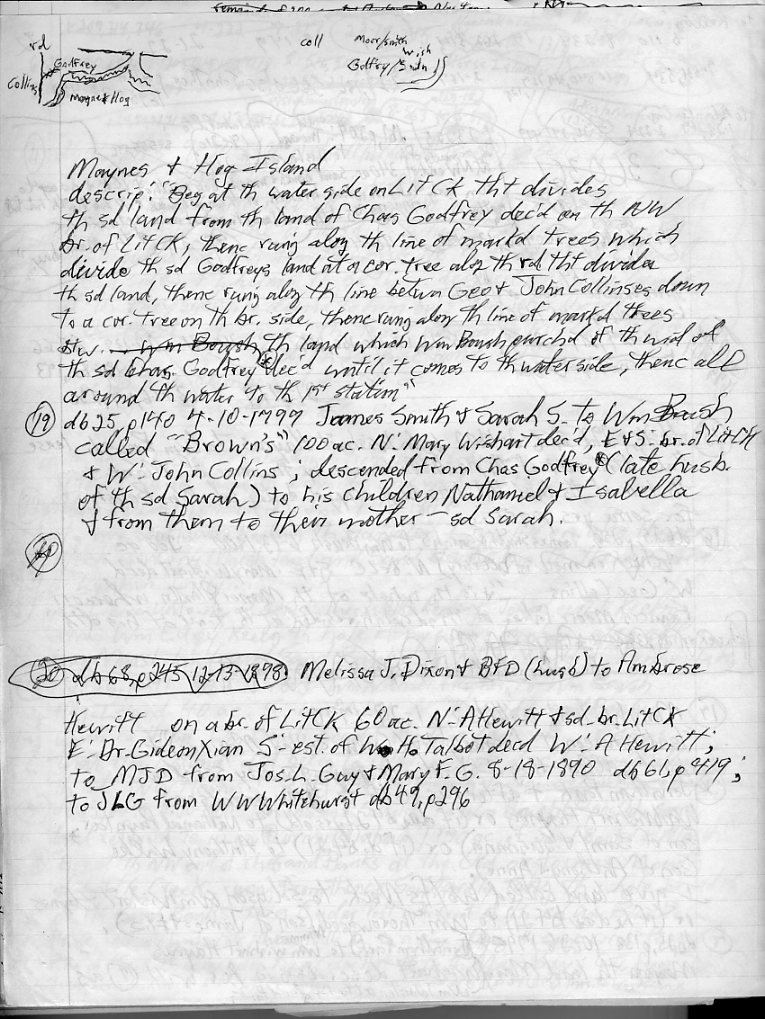 rd
Godfrey
Collins
Mayne & Hog
coll
Moor/smith
wish
Godfry/Smth
Maynes & Hog Island
descrip: "Beg at th water side on LitCK tht divides
th sd land from th land of Chas Godfrey dec'd on th NW
br. of LitCK, thenc runig along th line of markd trees which
divide th sd Godfreys land at a cor. tree alog th rd tht divides
th sd land, thenc runig along th line betwn Geo & John Collinses down
to a cor. tree on th br. side, thenc runig along th line of markd trees
btw. Wm Boush th land which Wm Boush purch'd of th wid of
th sd Chas. Godfrey dec'd until it comes to th water side, thenc all
around th water to th 1st station"
19 db25, p140 4-10-1799 James Smith & Sarah S. to Wm Boush
called "Brown's" 100 ac. N: Mary Wishart dec'd, E & S: br. of LitCK
& W: John Collins; descended from Chas Godfrey (late husb.
of th sd Sarah) to his children Nathaniel & Isabella
& from them to their mother - sd Sarah.
20
20 db68, p245 12-13-1898. Melissa J. Dixon & BFD (husb) to Ambrose
Hewitt on a br. of LitCK 60 ac. N: A Hewitt & sd br. LitCK
E: Dr. Gideon Xian S: est. of Wm H. Talbot decd W: A Hewitt;
to MJD from Jos. L. Guy & Mary F. G. 8-18-1890 db61, p419;
to JLG from WW Whitehurst db49, p296